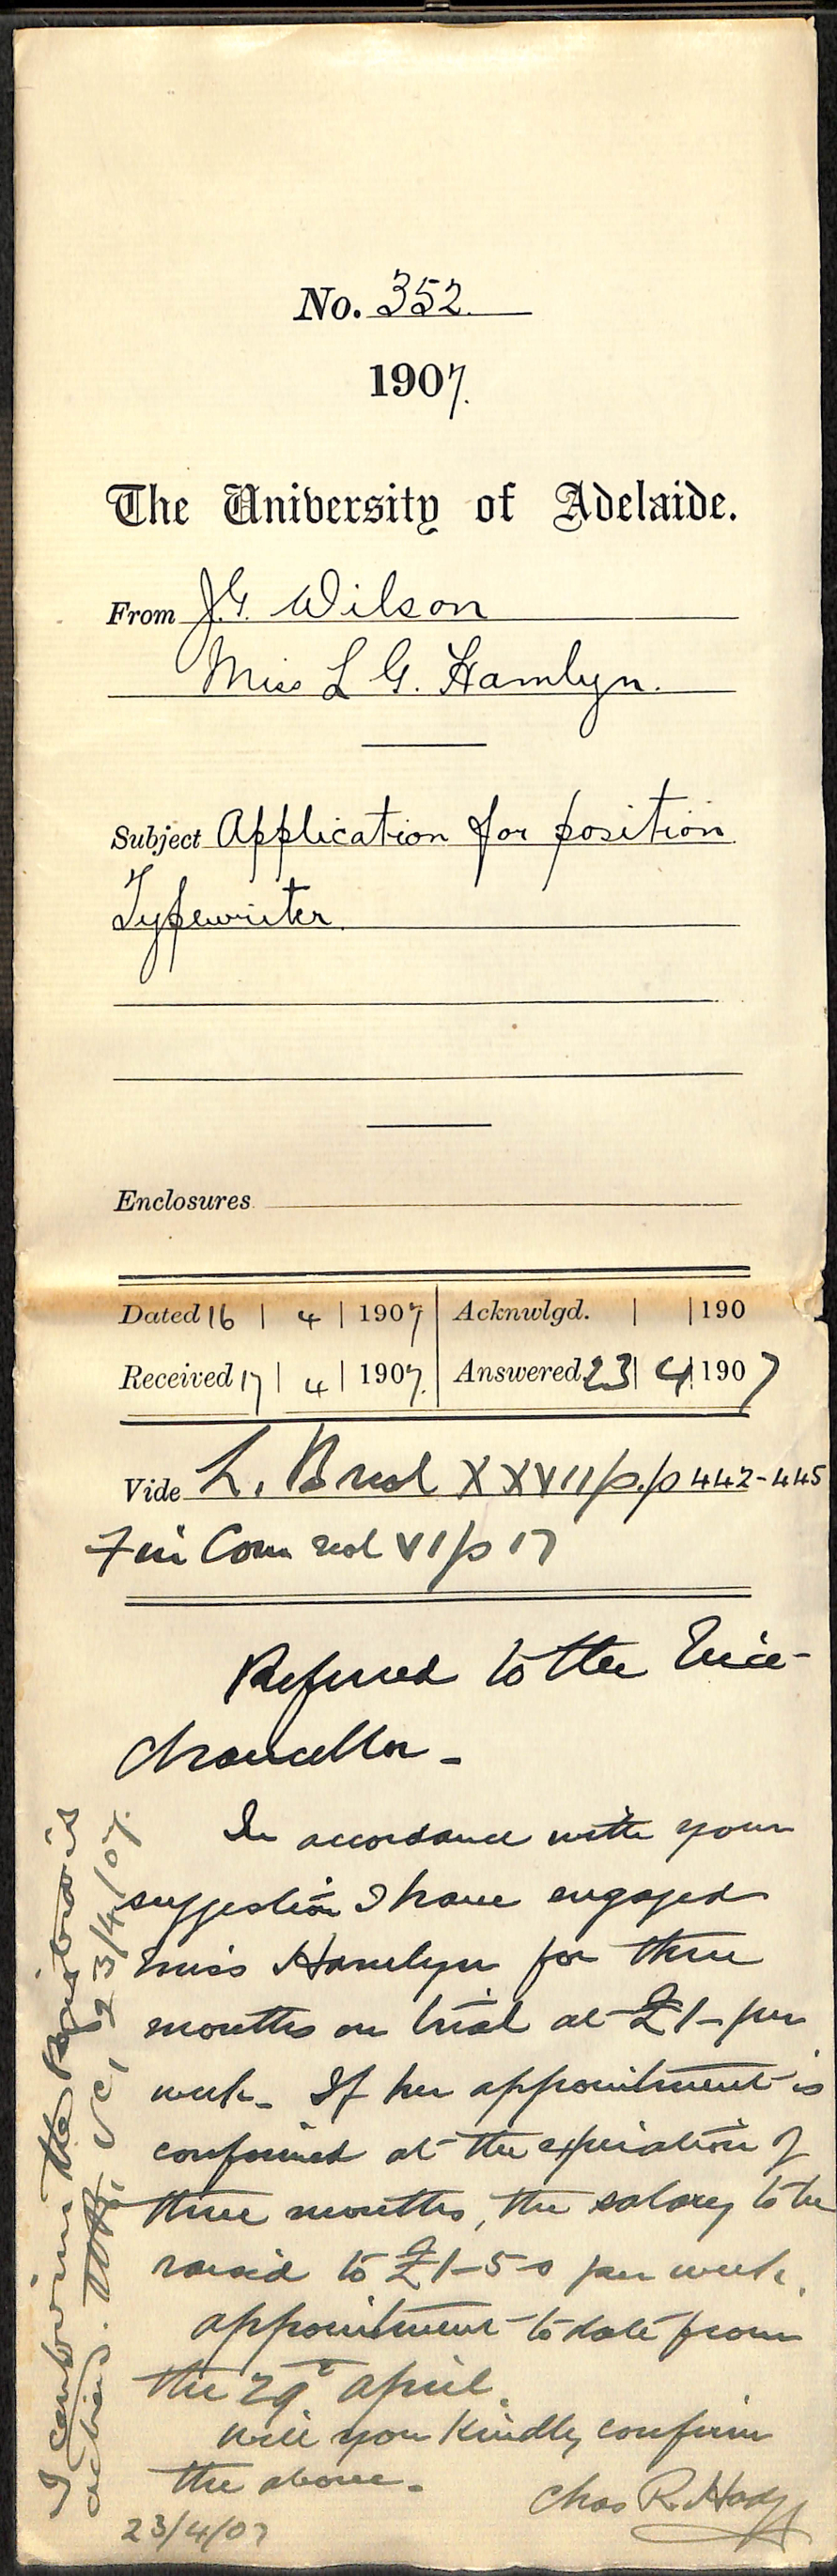 No. 352.
1907.
The University of Adelaide.
From J.G. Wilson
Miss L G. Hamlyn.
Subject Application for position
Typewriter.
Enclosures
Dated 16 | 4 | 1907 Acknwlgd. | | 190
Received 17 | 4 | 1907. Answered 23 | 4 | 1907
Vide L. XXVII p.p 442-445
Fin Com VI p 17
Referred to the Vice-
Chancellor -
In accordance with your
suggestion I have engaged
Miss Hamlyn for three
months on trial at £1- per
week. If her appointment is
confirmed at the expiration of
three months, the salary to be
raised to £1-5-0 per week.
appointment to date from
the 29th April.
Will you kindly confirm
the above.
Chas R. Hodge
23/4/07
I confirm the Registrar's
action. VC, 23/4/07.